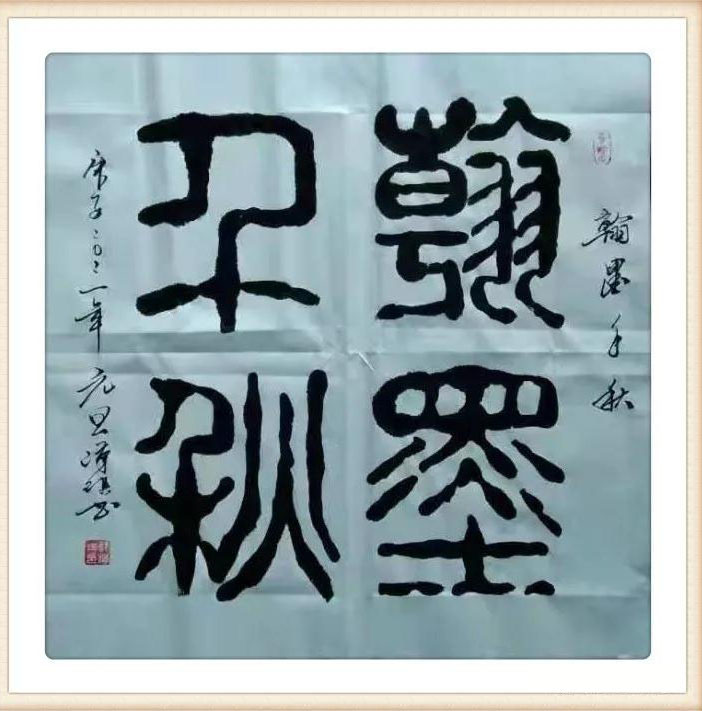 翰墨千秋
翰墨
千秋
庚子二〇二一年元旦书